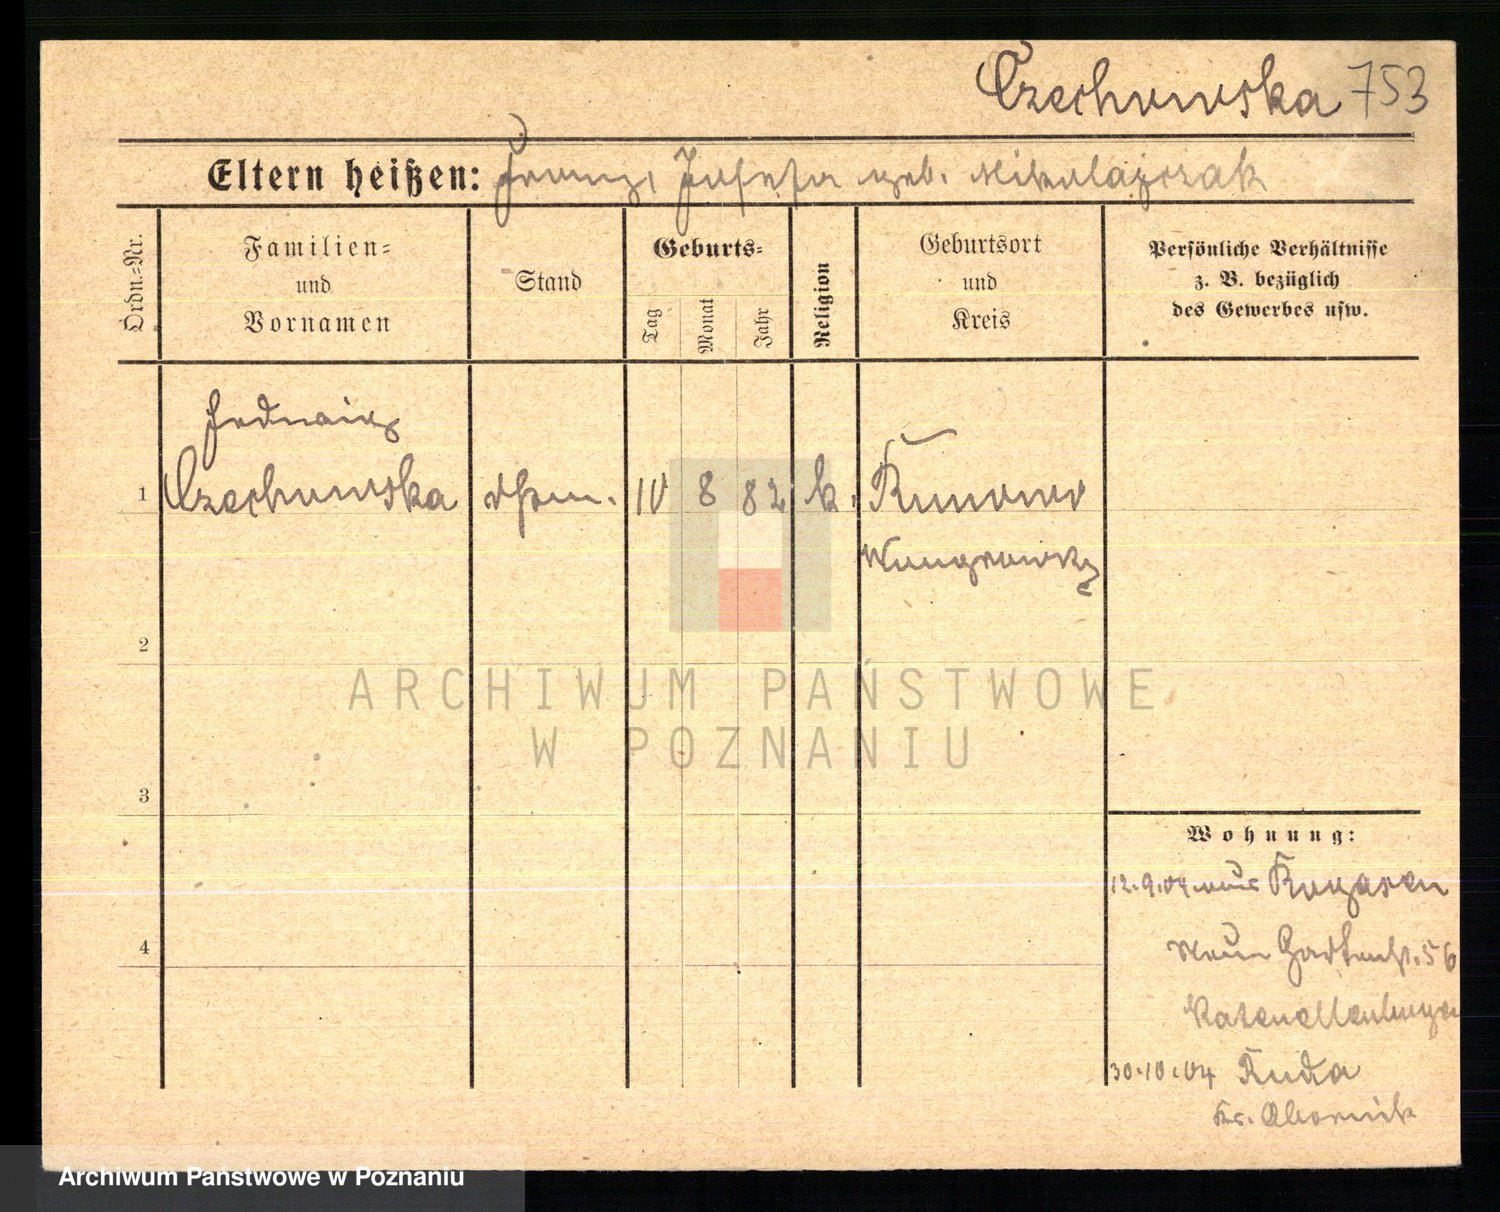 Czechowska 753
Eltern heißen: Franz, Josefa geb. Mikolajczak
Ordn.=Nr.
Familien=
und
Vornamen
Stand
Geburts=
Tag
Monat
Jahr
Religion
Geburtsort
und
Kreis
Persönliche Verhältnisse
z. B. bezüglich
des Gewerbes usw.
Hedwig
1 Czechowska 10 8 82 k. Runowo
Wongrowitz
2
3
4
ARCHIWUM PAŃSTWOWE
W POZNANIU
Wohnung:
12.9.04 aus Rogasen
Neue Gartenst. 56
30.10.04 Ruda
Kr. Obornik
Archiwum Państwowe w Poznaniu